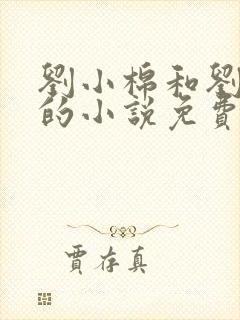 劉小棉和劉
的小說免費
賈存真